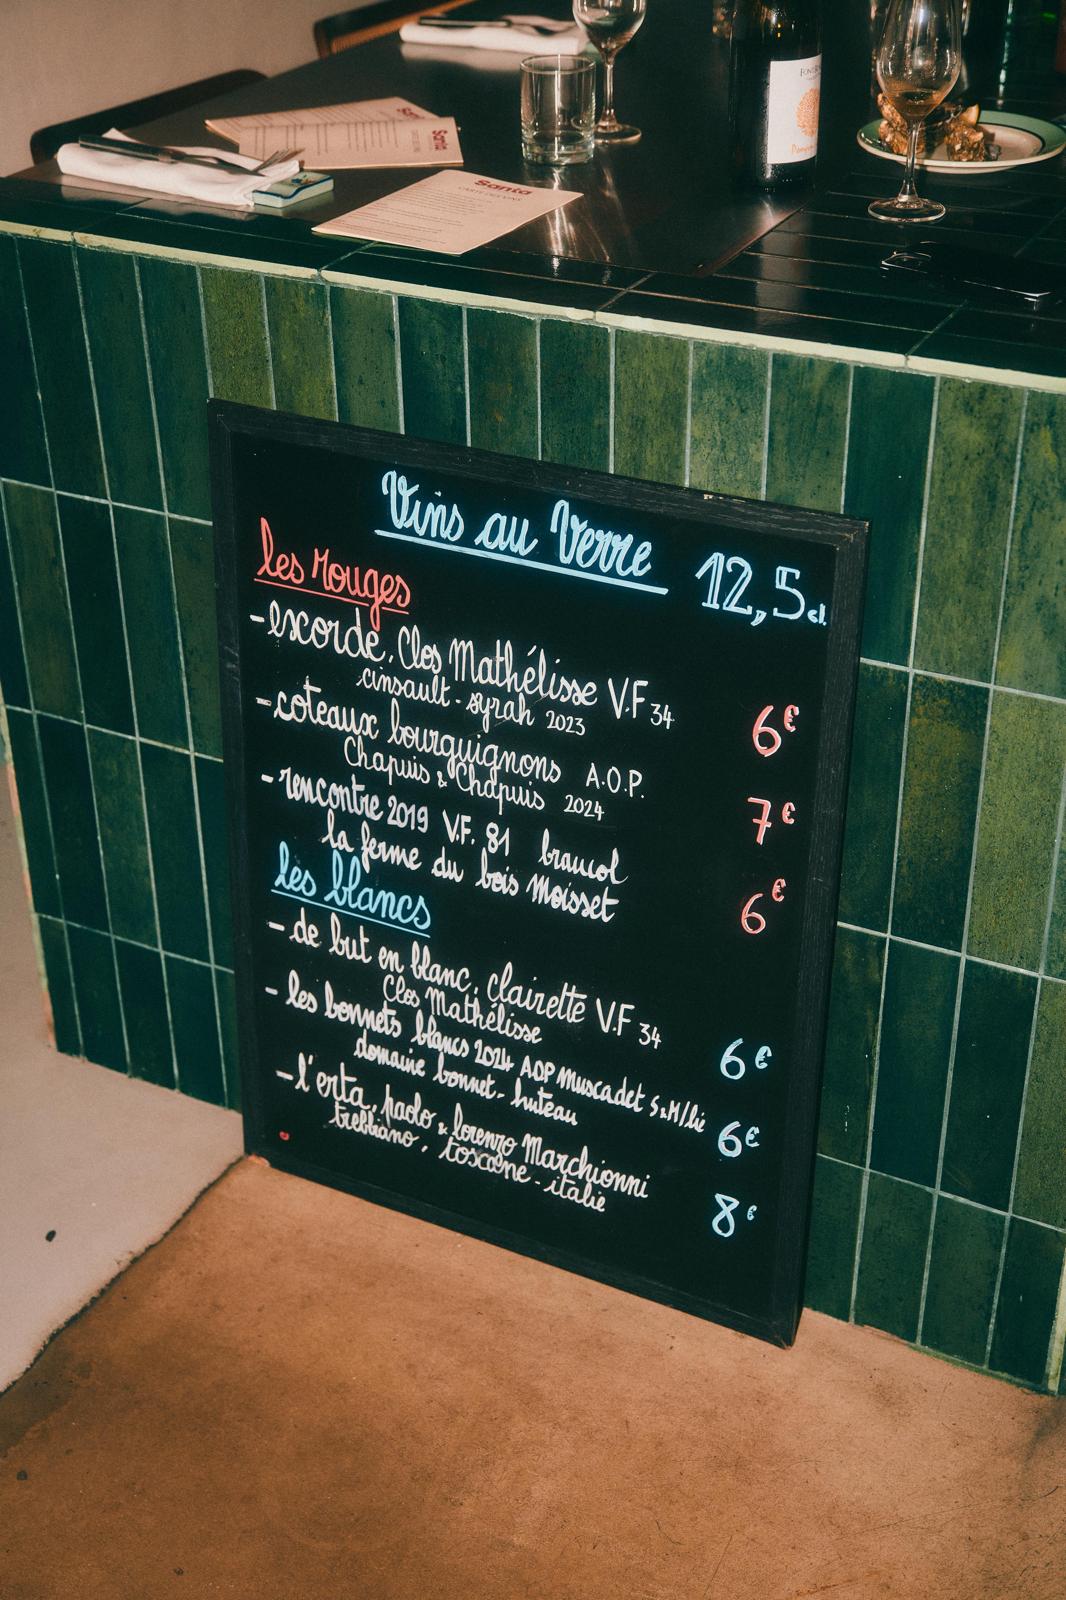 Santa
Santa
Santa
CARTE DES VINS
Vins au Verre 12,5 cl.
les rouges
- excorde, Clos Mathélisse V.F 34
cinsault - syrah 2023 6€
- coteaux bourguignons A.O.P.
Chapuis & Chapuis 2024 7€
- rencontre 2019 V.F. 81 braucol
la ferme du bois Moisset 6€
les blancs
- de but en blanc, clairette V.F 34
Clos Mathélisse 6€
- les bonnets blancs 2024 AOP Muscadet S&M/lie
domaine bonnet-huteau 6€
- l'erta, paolo & lorenzo Marchionni
trebbiano, toscane - italie 8€